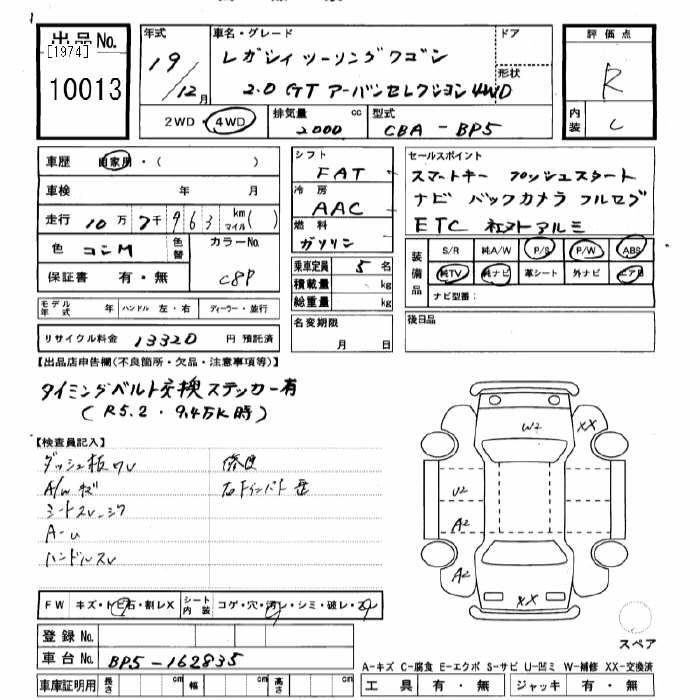 出品No.
[1974]
10013
年式
19/12月
車名・グレード
レガシィ ツーリングワゴン
2.0 GT アーバンセレクション 4WD
ドア
形状
評価点
R
内装
C
2WD・4WD
排気量 2000 cc
型式 CBA-BP5
車歴 自家用・( )
車検 年 月
走行 10万7千963 km マイル( )
色 コンM 色替
カラーNo. C8P
保証書 有・無
シフト FAT
冷房 AAC
燃料 ガソリン
乗車定員 5名
積載量 kg
総重量 kg
セールスポイント
スマートキー プッシュスタート
ナビ バックカメラ フルセグ
ETC 社外アルミ
装備品
S/R 純A/W P/S P/W ABS
純TV 純ナビ 革シート 外ナビ エアB
ナビ型番:
モデル年式 年 ハンドル 左・右 ディーラー・並行
リサイクル料金 13320 円 預託済
名変期限 月 日
後日品
【出品店申告欄(不良箇所・欠品・注意事項等)】
タイミングベルト交換ステッカー有
(R5.2・9.4万K時)
【検査員記入】
ダッシュ板ワレ
A/Wキズ
シートスレ
A-U
ハンドルスレ
W2
XX
U2
A2
A2
XX
スペア
FW キズ・トビ石・割レX シート内装 コゲ・穴・汚レ・シミ・破レ・スレ
登録No.
車台No. BP5-162835
車庫証明用 長さ cm 幅 cm 高さ cm
A-キズ C-腐食 E-エクボ S-サビ U-凹ミ W-補修 XX-交換済
工具 有・無 ジャッキ 有・無